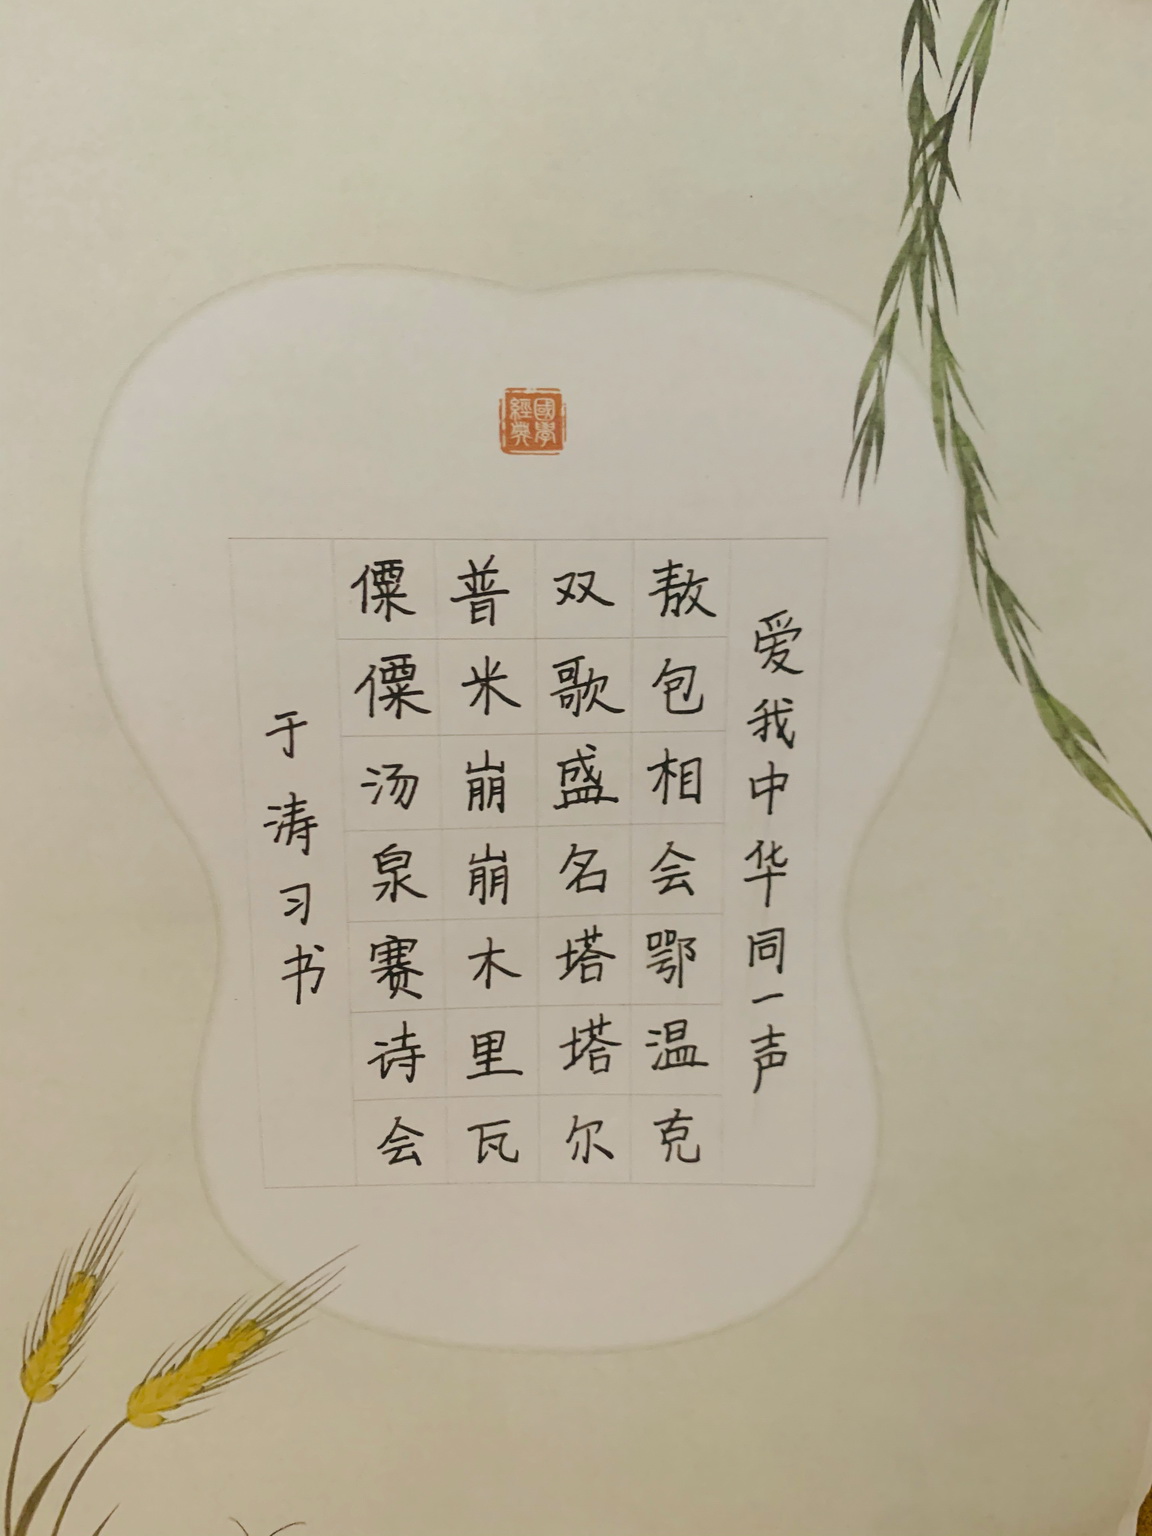 國學經典
爱我中华同一声
敖包相会鄂温克
双歌盛名塔塔尔
普米崩崩木里瓦
僳僳汤泉赛诗会
于涛习书